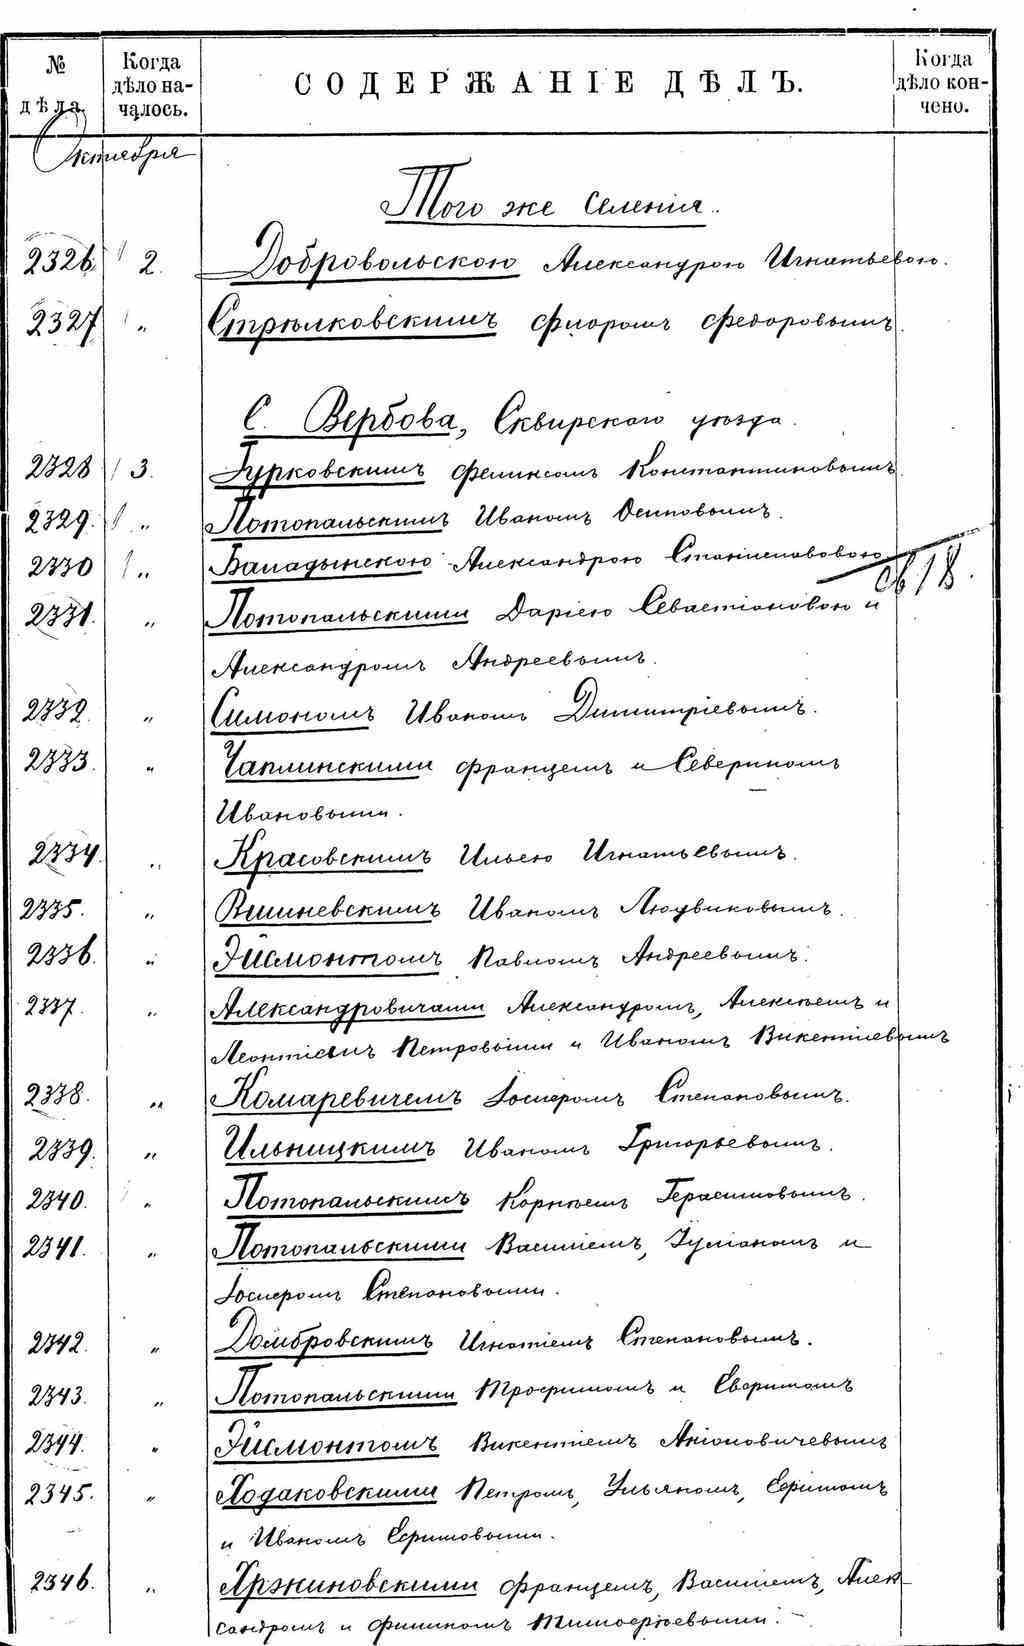 № дѣла. Когда дѣло началось. СОДЕРЖАНІЕ ДѢЛЪ. Когда дѣло кончено.
Октября
Того же селенія.
2326. 2. Добровольскою Александрою Игнатьевою.
2327 „ Стрѣлковскимъ Флоромъ Федоровымъ.
С. Вербова, Сквирскаго уѣзда.
2328 3. Гурковскимъ Феликсомъ Константиновымъ.
2329. „ Потопальскимъ Иваномъ Осиповымъ.
2330 „ Баладынскою Александрою Станиславовою
св 18.
2331. „ Потопальскими Даріею Севастіановою и
Александромъ Андреевымъ.
2332. „ Симономъ Иваномъ Димитріевымъ.
2333. „ Чаплинскими Францемъ и Севериномъ
Ивановыми.
2334. „ Красовскимъ Ильею Игнатьевымъ.
2335. „ Вишневскимъ Иваномъ Людвиковымъ.
2336. „ Эйсмонтомъ Павломъ Андреевымъ.
2337. „ Александровичами Александромъ, Алексѣемъ и
Леонтіемъ Петровыми и Иваномъ Викентіевымъ
2338. „ Комаревичемъ Іосифомъ Степановымъ.
2339. „ Ильницкимъ Иваномъ Григорьевымъ.
2340. „ Потопальскимъ Корнѣемъ Герасимовымъ.
2341. „ Потопальскими Василіемъ, Іуліаномъ и
Іосифомъ Степановыми.
2342. „ Домбровскимъ Игнатіемъ Степановымъ.
2343. „ Потопальскими Трофимомъ и
2344. „ Эйсмонтомъ Викентіемъ
2345. „ Ходаковскими Петромъ, Ульяномъ, Ефимомъ
и Иваномъ Ефимовыми.
2346. „ Францемъ, Василіемъ, Алек-
сандромъ и Филипомъ Тимофѣевыми.